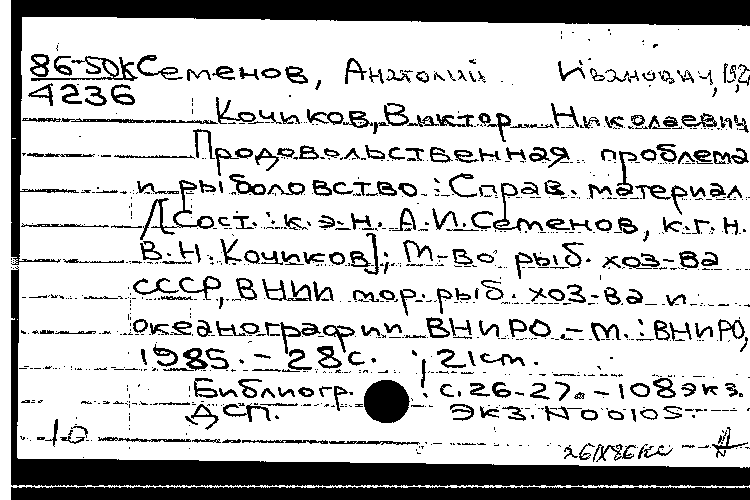 86-50к Семенов, Анатолий Иванович, 192
4236
Кочиков, Виктор Николаевич
Продовольственная проблема
и рыболовство : Справ. материал
/[Сост. : к.э.н. А.И.Семенов, к.г.н.
В.Н.Кочиков]; М-во рыб. хоз-ва
СССР, ВНИИ мор. рыб. хоз-ва и
океанографии ВНИРО. - М. : ВНИРО,
1985. - 28с. ; 21см.
Библиогр. : с.26-27. - 108экз.
ДСП. Экз. N00105.
10